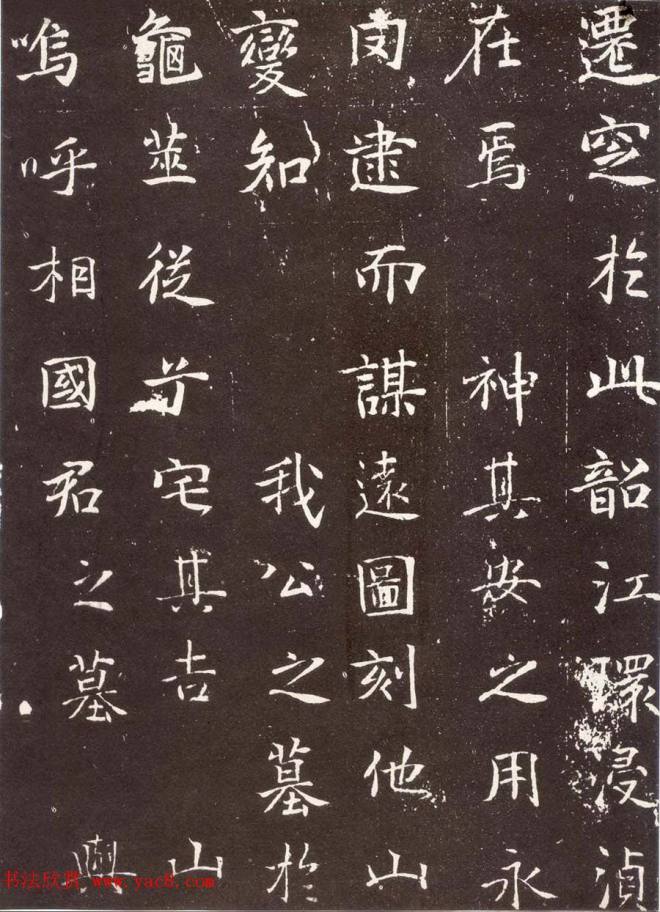 遷窆於此韶江環浸湞
在焉 神其安之用永
逮而謀遠圖刻他山
變知 我公之墓於
龜筮從兮宅其吉 山
嗚呼相國君之墓 與
书法欣赏 www.yac8.com